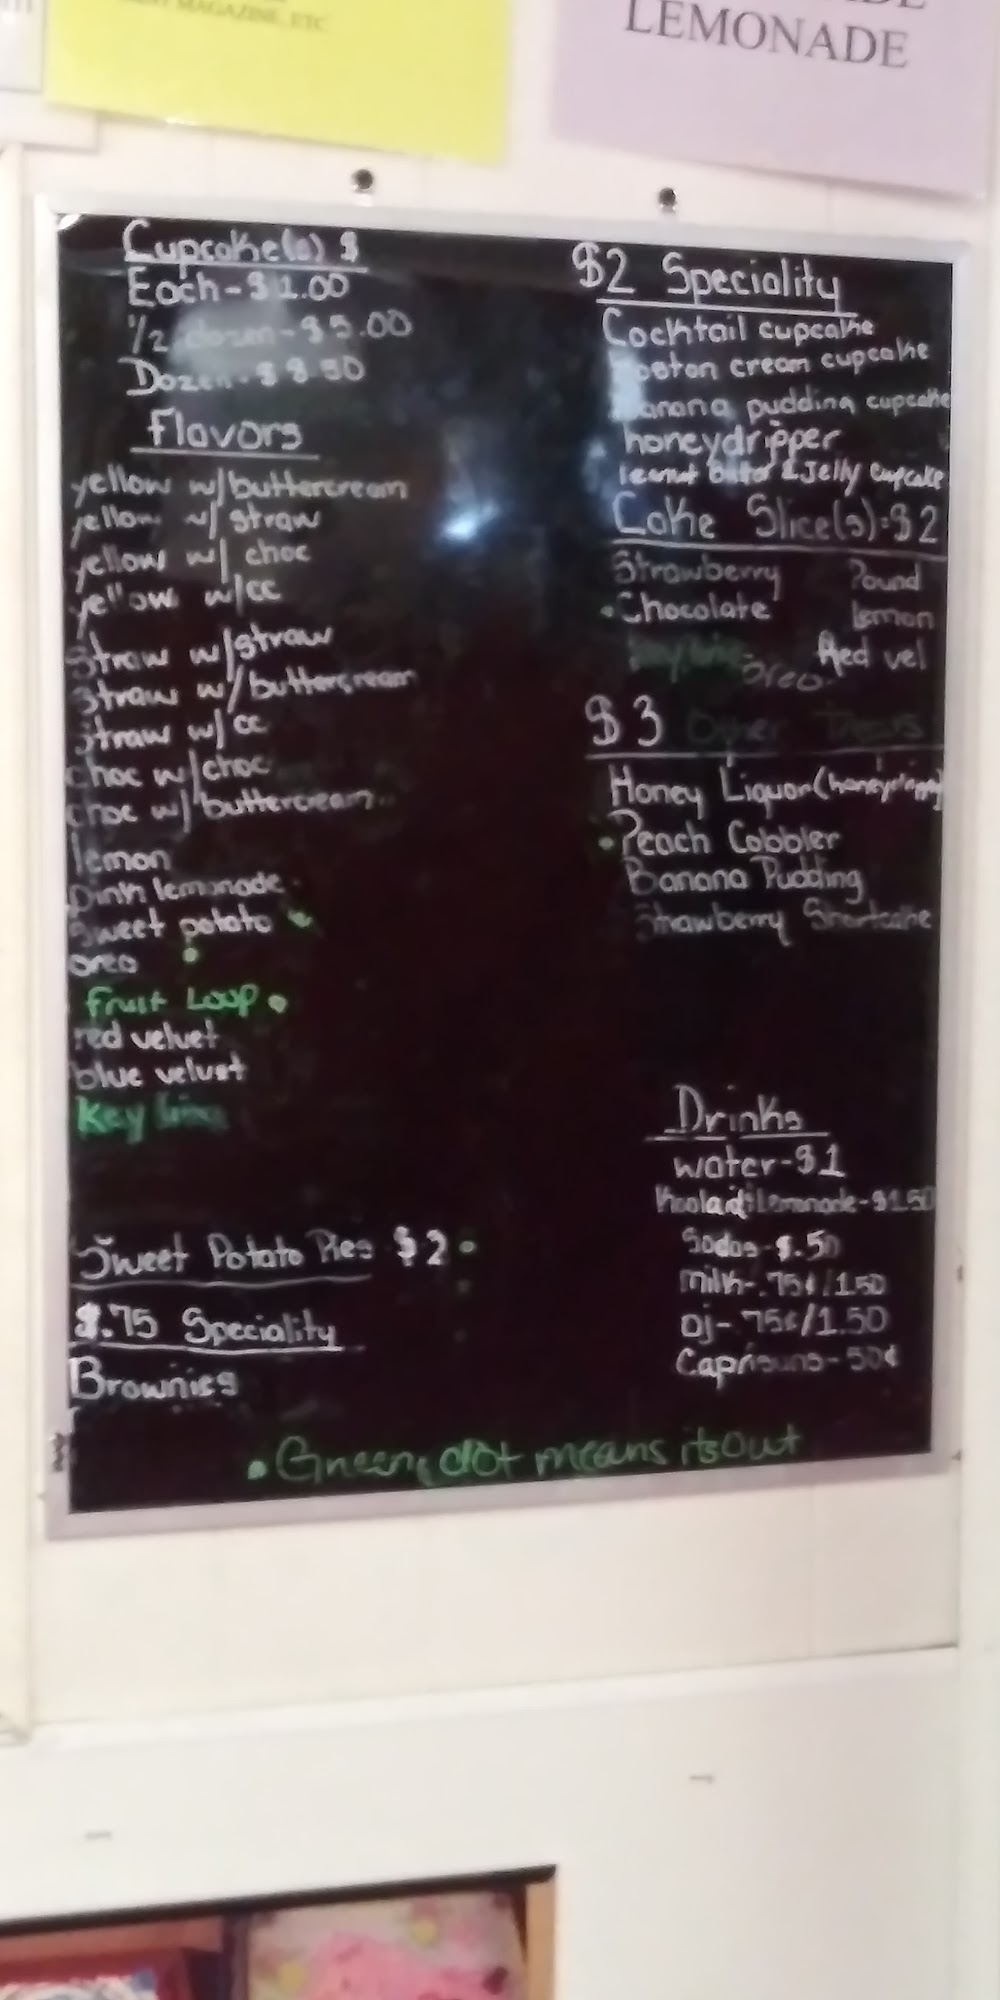 MAGAZINE, ETC
LEMONADE
Cupcake(s) $
Each - $1.00
1/2 dozen - $5.00
Dozen - $9.50
Flavors
yellow w/buttercream
yellow w/ straw
yellow w/ choc
yellow w/cc
Straw w/straw
Straw w/buttercream
Straw w/ cc
choc w/choc
choc w/ buttercream
lemon
Pink lemonade
Sweet potato
oreo
Fruit Loop
red velvet
blue velvet
Key lime
Sweet Potato Pies $2
$.75 Speciality
Brownies
$2 Speciality
Cocktail cupcake
Boston cream cupcake
Banana pudding cupcake
honeydripper
Peanut Butter & Jelly cupcake
Cake Slice(s)=$2
Strawberry Pound
Chocolate Lemon
Key lime Red vel
Oreo
$3 Other Treats
Honey Liquor (honeydripper)
Peach Cobbler
Banana Pudding
Strawberry Shortcake
Drinks
water-$1
Koolaid/Lemonade-$1.50
Sodas-$.50
milk-.75¢/1.50
oj-.75¢/1.50
Caprisuns-50¢
Green dot means its out